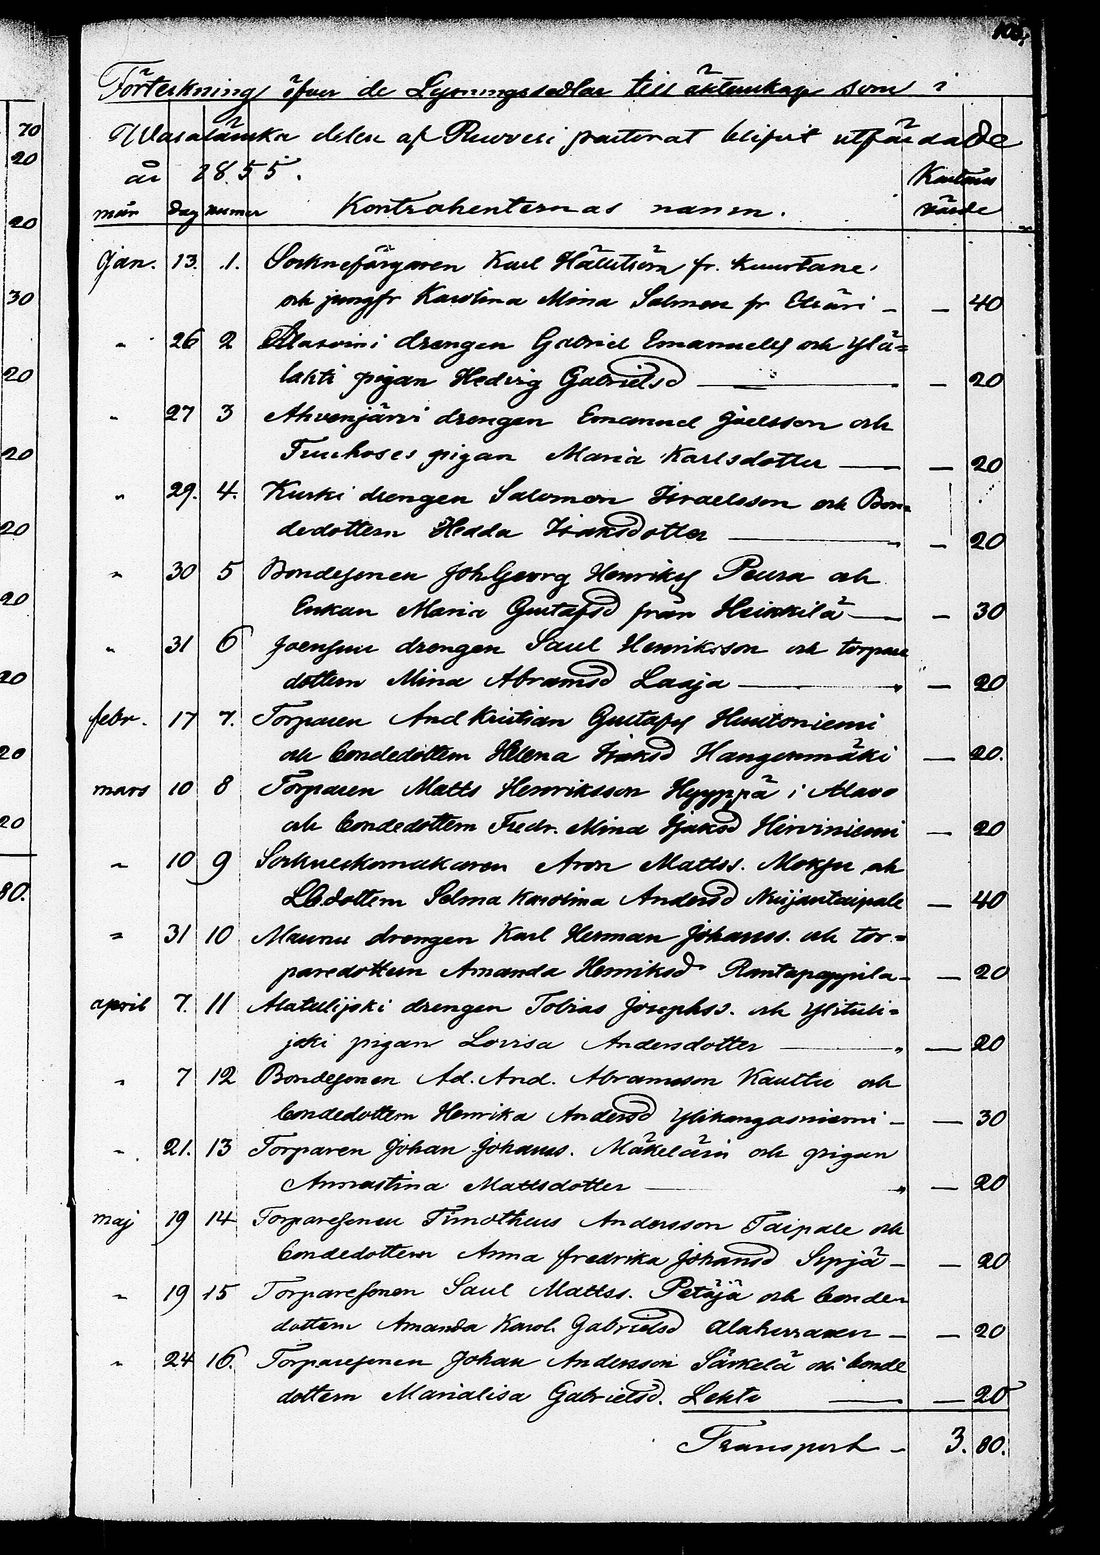 70
20
20
30
20
20
20
20
20
20
20
80.
Förteckning öfver de Lysningssedlar till äktenskap som i
Wasalänska delen af Ruovesi pastorat blifvit utfärdade
år 1855.
Kartans
värde
mån dag numer Kontrahenternas namn.
Jan. 13. 1. Socknefärgaren Karl Hällström fr. Kuortane
och jungfr Karolina Mina Salmen fr Etsäri — 40
" 26 2 drengen Gabriel Emanuels och Ylä=
lahti pigan Hedvig Gabrielsd — 20
" 27 3 Ahvenjärvi drengen Emanuel Joelsson och
pigan Maria Karlsdotter — 20
" 29. 4. Kurki drengen Salomon Israelsson och Bon=
dedottern Hedda Isaksdotter — 20
" 30 5 Bondesonen Joh Georg Henriks Peura och
Enkan Maria Gustafsd från Heikkilä — 30
" 31 6 Joensuu drengen Saul Henriksson och torpare
dottern Mina Abramsd Laaja — 20
febr. 17 7. Torparen And Kristian Gustafs Huutoniemi
och bondedottern Helena Isaksd Hangonmäki — 20.
mars 10 8 Torparen Matts Henriksson Hyyppä i Alavo
och bondedottern Fredr. Mina Isaksd Hirviniemi — 20
" 10 9 Sockneskomakaren Aron Mattss. och
dottern Selma Karolina Andersd — 40
" 31 10 Maunu drengen Karl Herman Johanss. och tor=
paredottern Amanda Henriksd Rantapappila — 20
april 7. 11 Alatulijoki drengen Tobias Josephss. och Ylituli=
joki pigan Lovisa Andersdotter — 20
" 7 12 Bondesonen Ad. And. Abramsson Kauttu och
bondedottern Henrika Andersd Ylikangasniemi — 30
" 21. 13 Torparen Johan Johanss. Mäkeläin och pigan
Annastina Mattsdotter — 20
maj 19 14 Torparesonen Timotheus Andersson Taipale och
bondedottern Anna fredrika Johansd — 20
" 19 15 Torparesonen Saul Mattss. Petäjä och bonde=
dottern Amanda Karol. Gabrielsd — 20
" 24 16. Torparesonen Johan Andersson Särkelä och bonde
dottern Marialisa Gabrielsd. Lehto — 20
Transport — 3. 80.